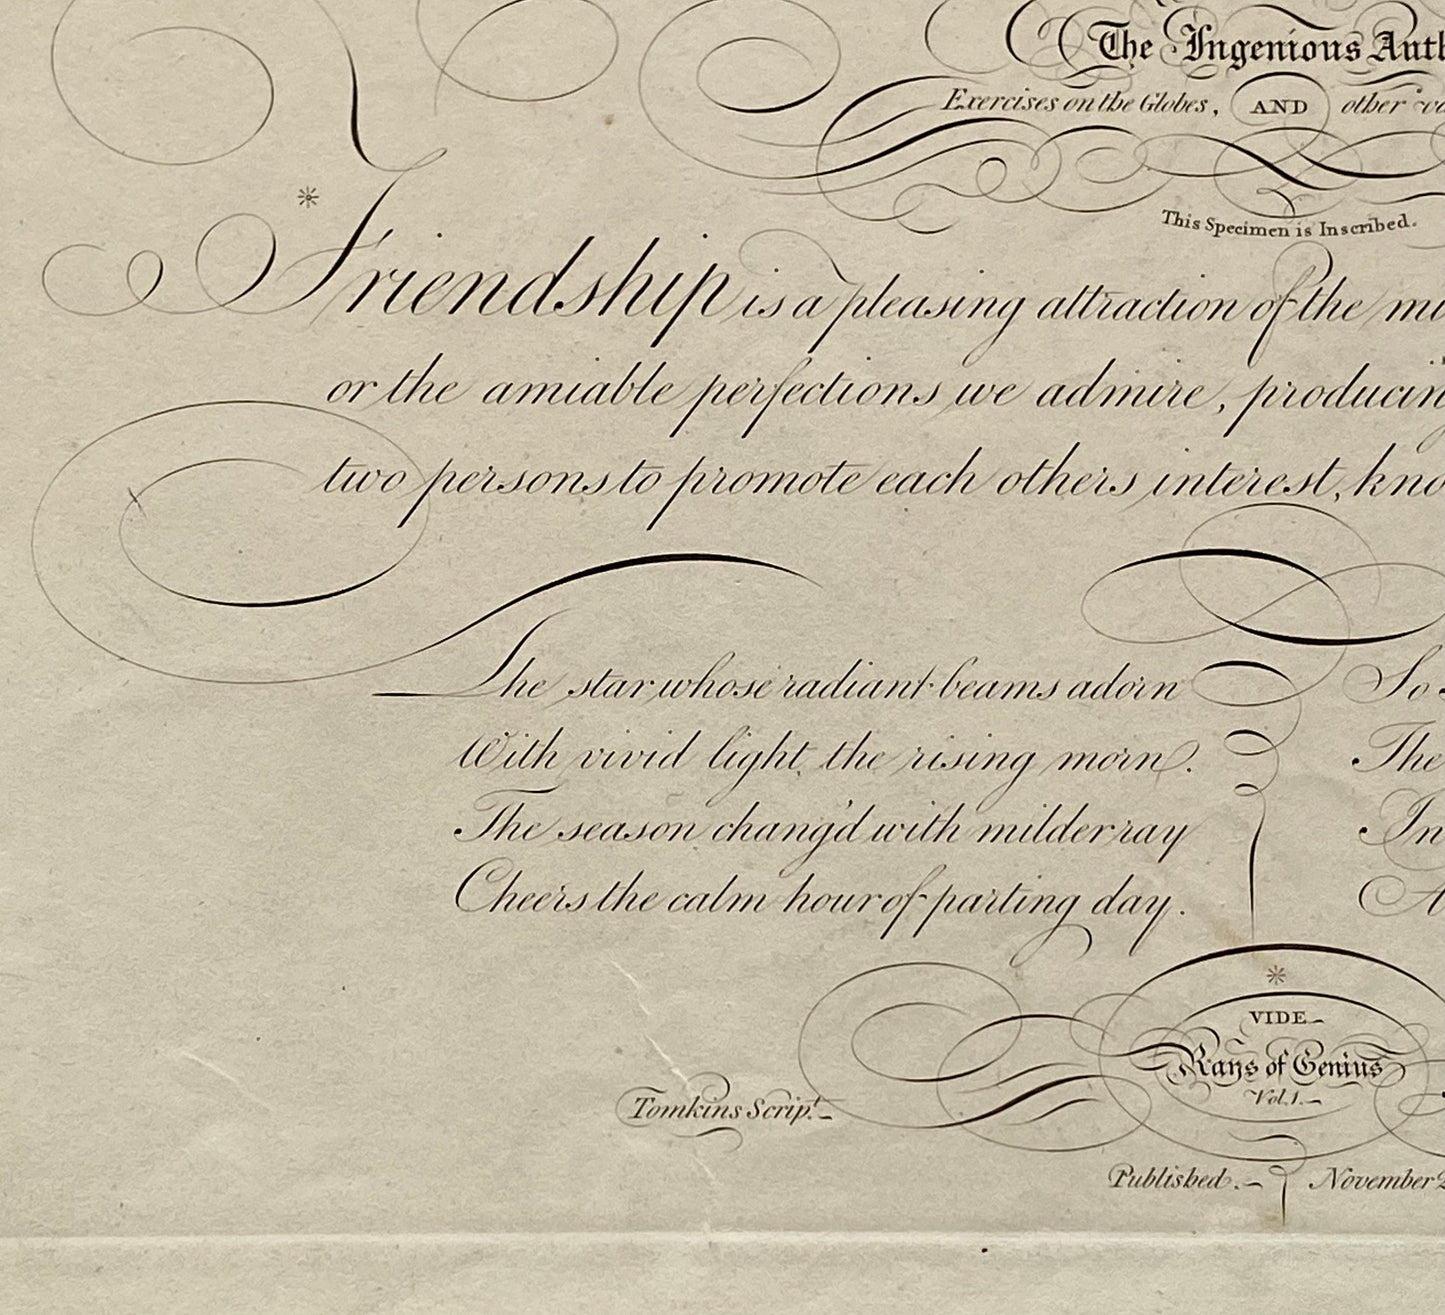 The Ingenious
Exercises on the Globes, AND other
This Specimen is Inscribed.
* Friendship is a pleasing attraction of the
or the amiable perfections we admire, producing
two persons to promote each others interest,
The star whose radiant beams adorn
With vivid light, the rising morn.
The season chang'd with milder ray
Cheers the calm hour of parting day.
So
The
In
*
VIDE
Rays of Genius
Vol. 1.
Tomkins Scrip.t
Published. November